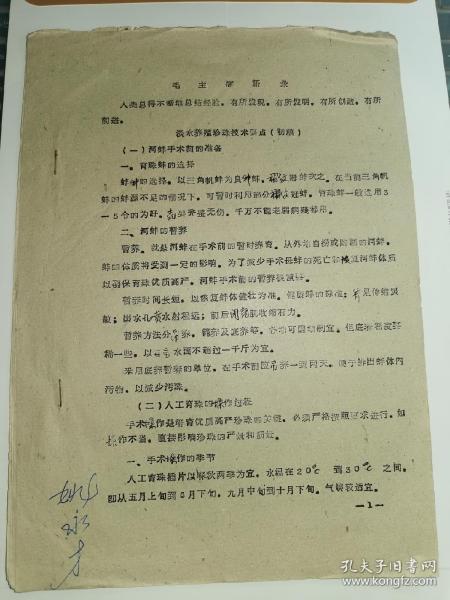 毛主席语录
人类总得不断地总结经验，有所发现，有所发明，有所创造，有所
前进。
淡水养殖珍珠技术要点（初稿）
（一）河蚌手术前的准备
一、育珠蚌的选择
蚌种的选择，以三角帆蚌为良种蚌，褶纹冠蚌次之，在当前三角帆
蚌的蚌源不足的情况下，可暂时利用部分褶纹冠蚌，育珠蚌一般选用3
-5令的为好，完整无伤，千万不能老弱病残都用。
二、河蚌的暂养
暂养，就是河蚌在手术前的暂时养育，从外地自捞或购回的河蚌，
蚌的体质将受到一定的影响，为了减少手术母蚌的死亡和恢复河蚌体质
以确保育珠优质高产，河蚌手术前的暂养很重要。
暂养时间长短，以恢复蚌体健壮为准，健康蚌的标准：
敏；出水孔喷水射程远；前后闭壳肌收缩有力。
暂养方法分养、笼养及底养等，各地可因地制宜，但底养密度要
稀一些，以亩水面不超过一千斤为宜。
采用底养暂养的单位，在手术前应吊养一到两天，便于排出蚌体内
污物，以减少污珠。
（二）人工育珠的操作过程
手术操作是培育优质高产珍珠的关键，必须严格按照要求进行，如
操作不当，直接影响珍珠的产量和质量。
一、手术操作的季节
人工育珠插片以春秋两季为宜，水温在20℃ 到30℃ 之间，
即从五月上旬到6月下旬，九月中旬到十月下旬，气候较适宜。
—1—
孔夫子旧书网
book.kongfz.com